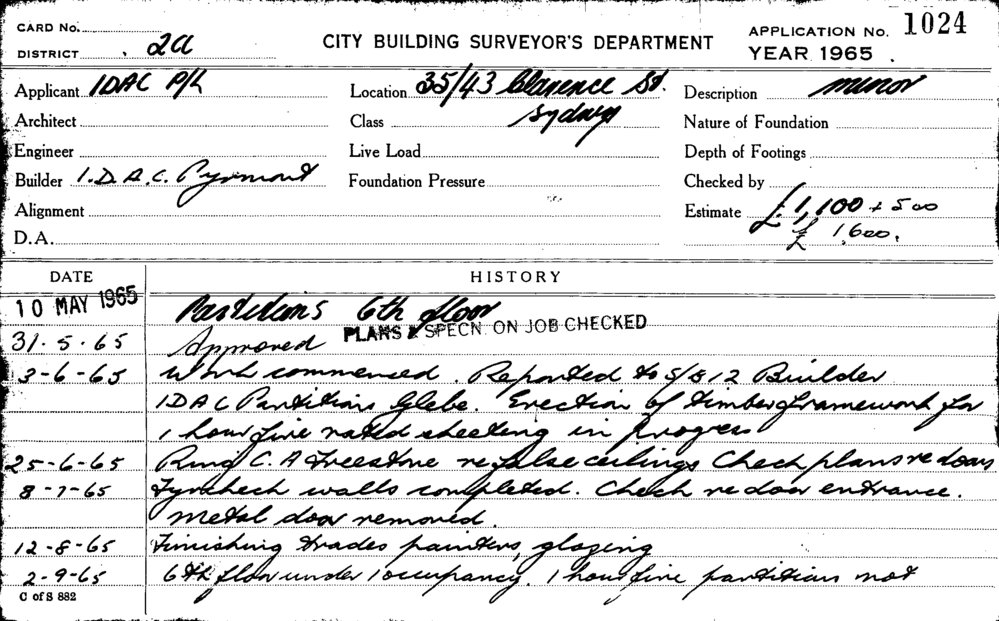 CARD No.
DISTRICT 2a
CITY BUILDING SURVEYOR'S DEPARTMENT
APPLICATION No. 1024
YEAR 1965
Applicant IDAC P/L
Location 35/43 Clarence St.
Sydney
Description minor
Architect
Class
Nature of Foundation
Engineer
Live Load
Depth of Footings
Builder I.D.A.C. Pyrmont
Foundation Pressure
Checked by
Alignment
Estimate £1,100 + 500
£ 1,600.
D.A.
DATE HISTORY
10 MAY 1965 Partitions 6th floor
PLANS & SPECN. ON JOB CHECKED
31-5-65 Approved
3-6-65 Work commenced. Reported to S/B 12 Builder
IDAC Partitions Glebe. Erection of timber framework for
1 hour fire rated sheeting in progress
25-6-65 Ring C. A Freestone re false ceilings Check plans re doors
8-7-65 Fyrchech walls completed. Check re door entrance.
Metal door removed.
12-8-65 Finishing trades painters, glazing
2-9-65 6th floor under occupancy. 1 hour fire partition not
C of S 882